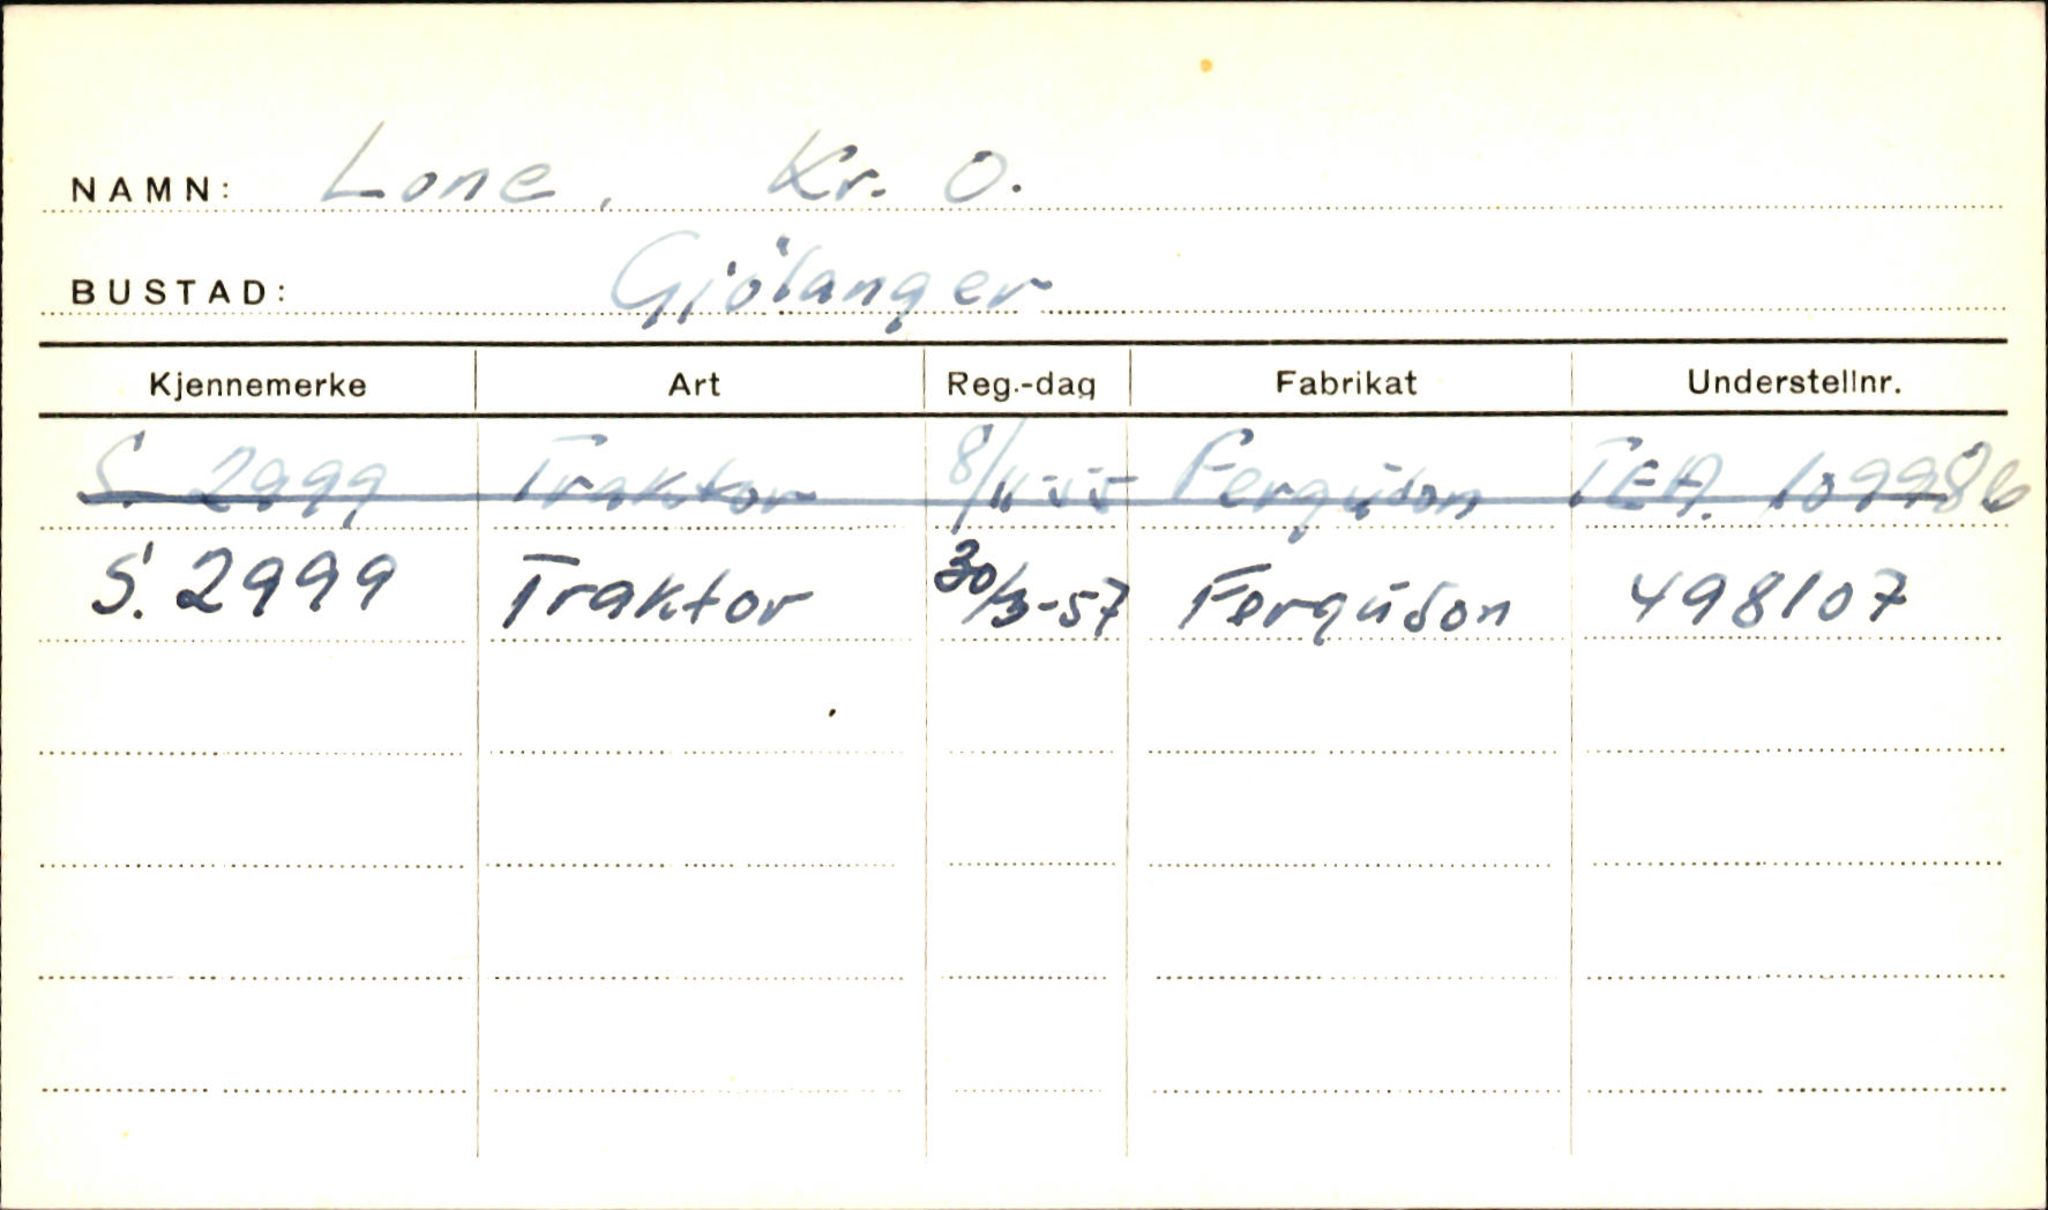 NAMN: Lone, Kr. O.
BUSTAD: Gjölanger
Kjennemerke Art Reg.-dag Fabrikat Understellnr.
S. 2999 Traktor 8/11-55 Ferguson TEA. 109986
S. 2999 Traktor 30/3-57 Ferguson 498107